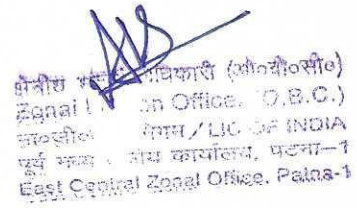 क्षेत्रीय अधिकारी (ओ०बी०सी०)
Zonal n Office. O.B.C.)
निगम / LIC OF INDIA
पूर्व मध्य कार्यालय, पटना-1
East Central Zonal Office, Patna-1